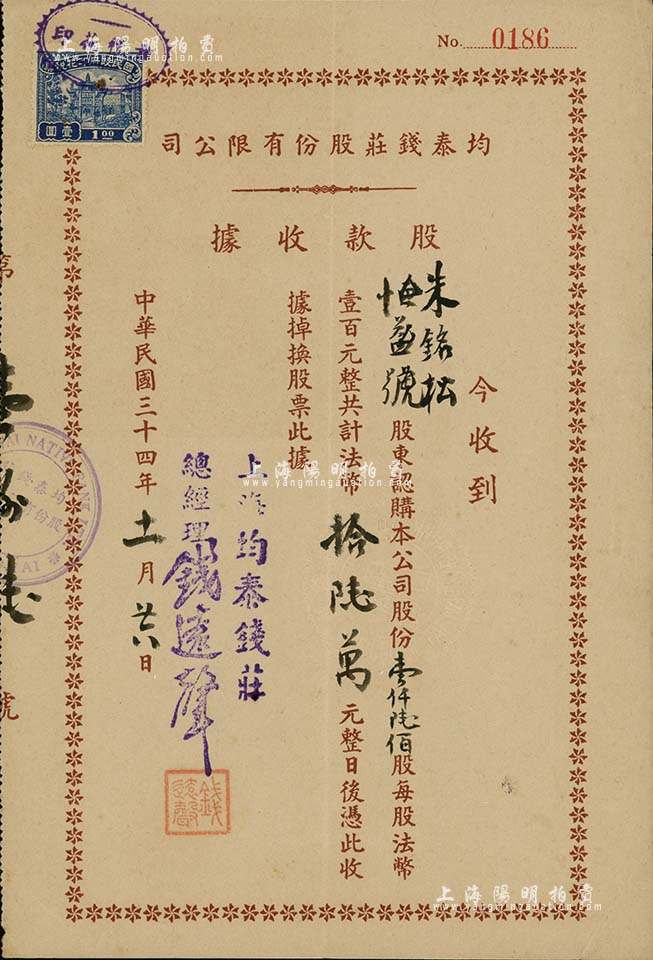 No. 0186
均泰錢莊股份有限公司
股款收據
今收到
朱銘松
股東認購本公司股份壹仟陸佰股每股法幣
壹百元整共計法幣拾陸萬元整日後憑此收
據掉換股票此據
上海均泰錢莊
總經理錢遠聲
中華民國三十四年十一月廿六日
錢遠聲
壹圓
1.00
第
號
上海陽明拍賣
www.yangmingauction.com
上海陽明拍賣
www.yangmingauction.com
上海陽明拍賣
www.yangmingauction.com